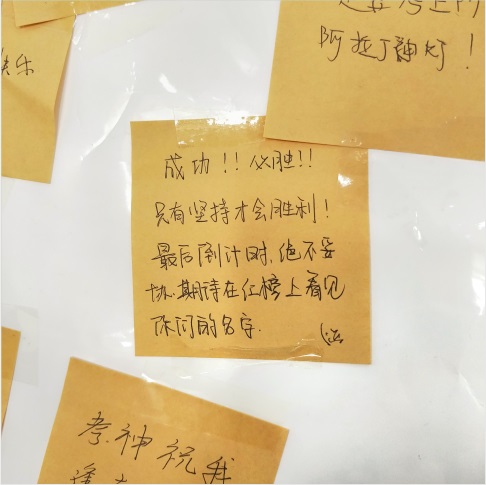 阿拉丁神灯！
快乐
成功！！必胜！！
只有坚持才会胜利！
最后倒计时，绝不妥
协.期待在红榜上看见
你们的名字.
考神祝我